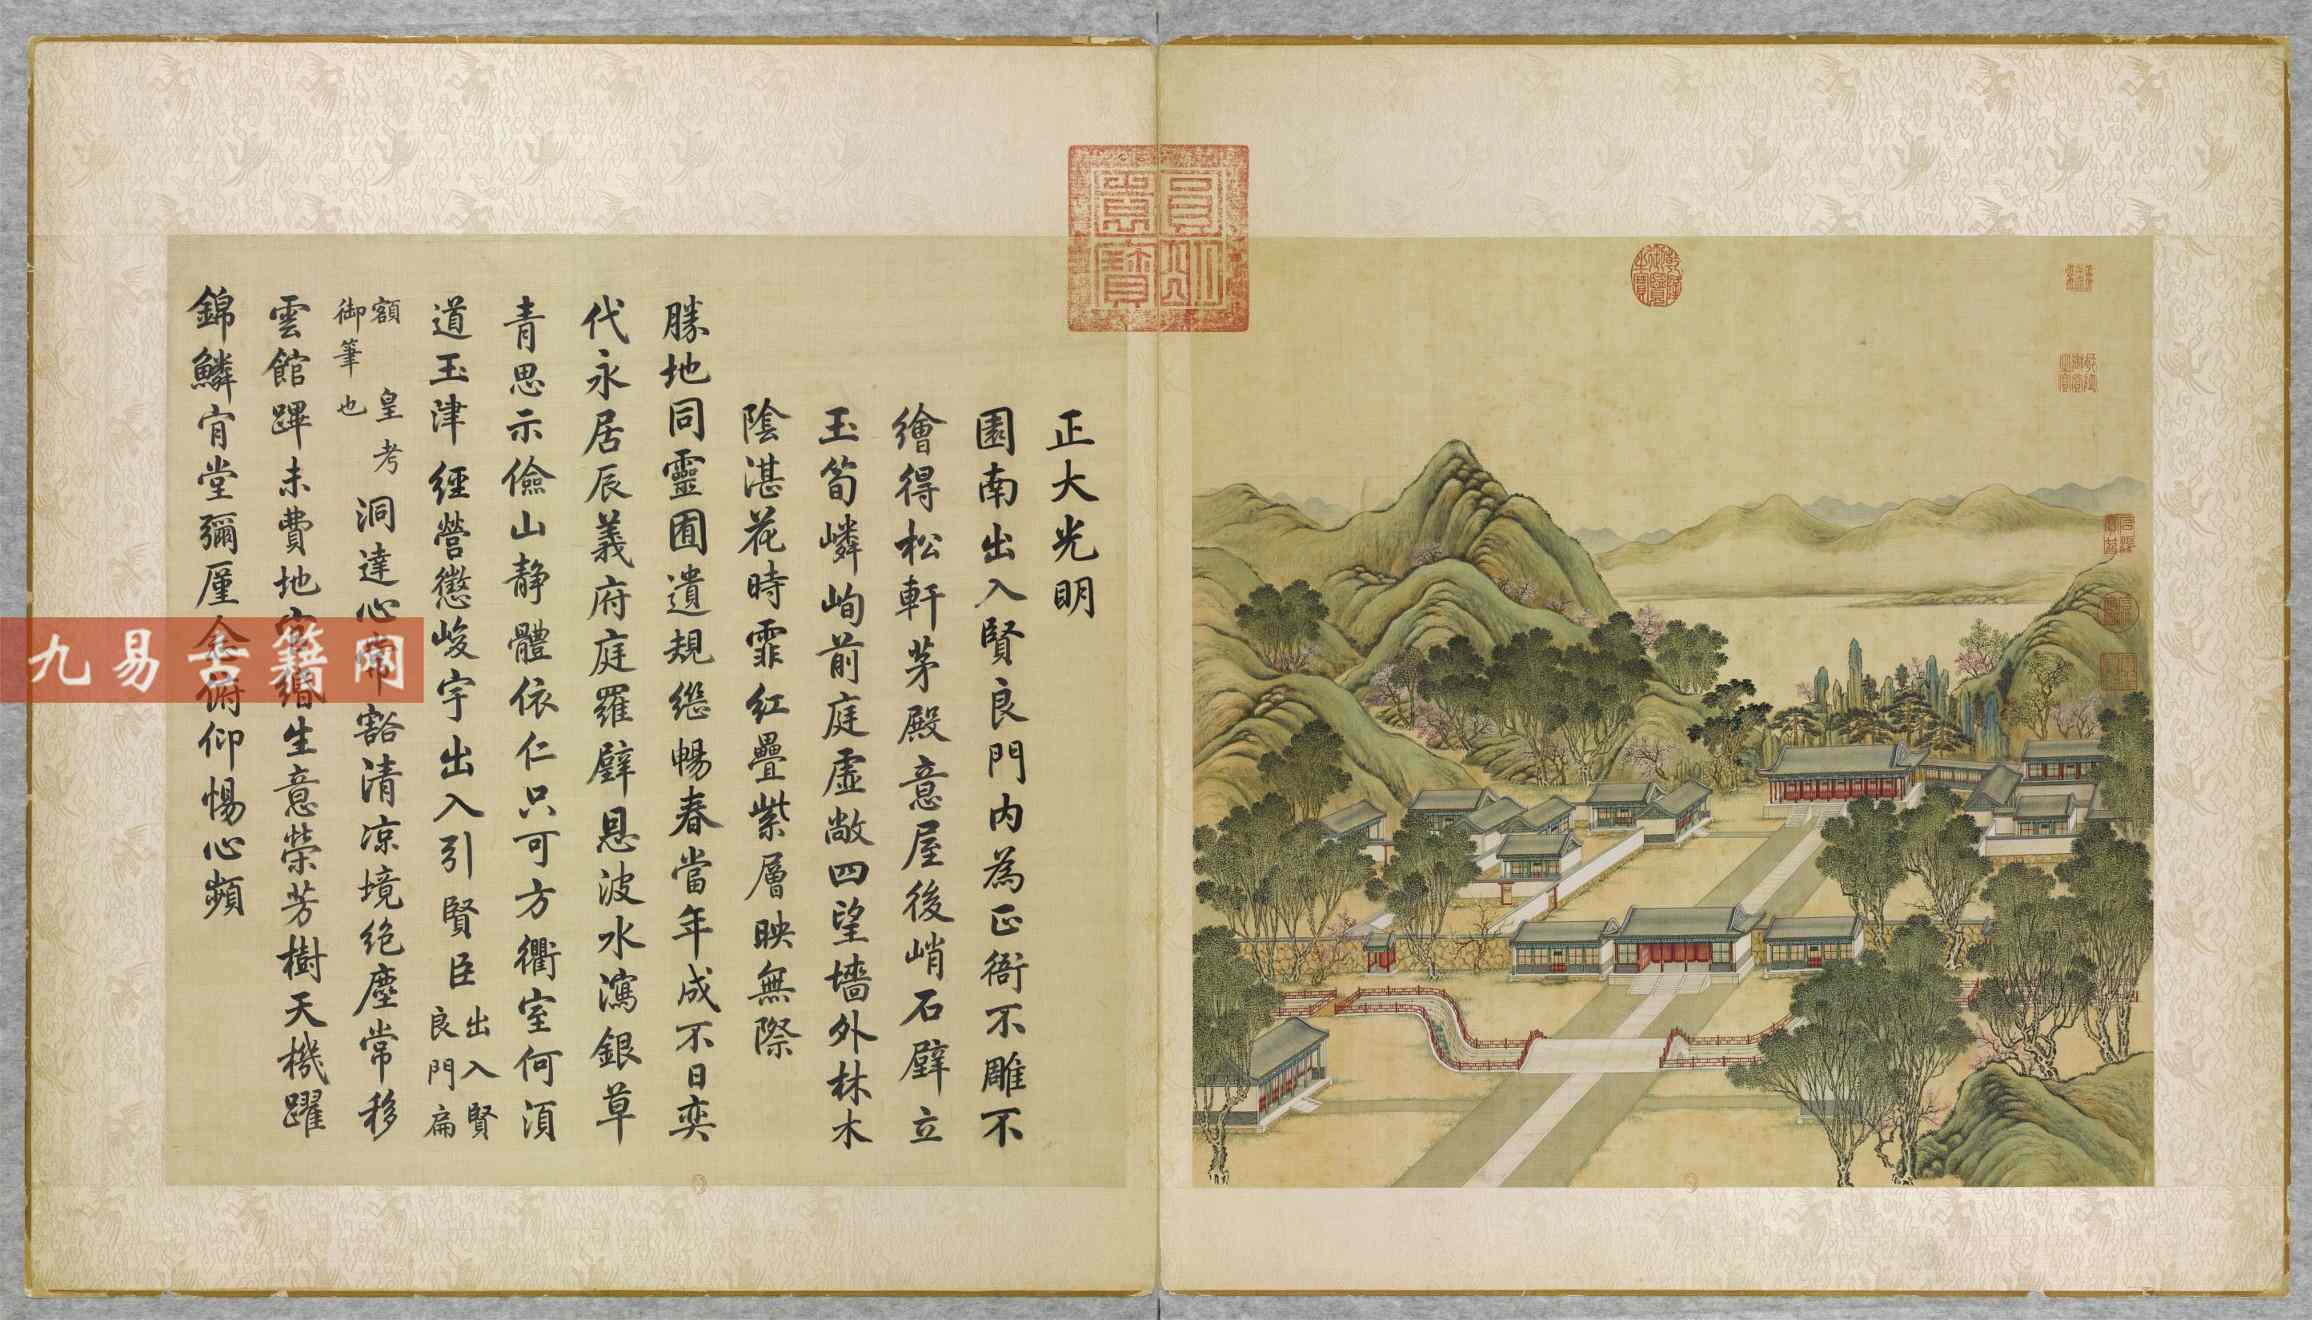 正大光明
園南出入賢良門內為正衙不雕不
繪得松軒茅殿意屋後峭石壁立
玉筍嶙峋前庭虛敞四望墻外林木
陰湛花時霏紅疊紫層映無際
勝地同靈囿遺規繼暢春當年成不日奕
代永居辰義府庭羅壁恩波水瀉銀草
青思示儉山靜體依仁只可方衢室何須
道玉津經營懲峻宇出入引賢臣
出入賢
良門扁
額 皇考
御筆也
洞達心常豁清凉境絕塵常移
雲館蹕未費地官緡生意榮芳樹天機躍
錦鱗宵堂彌厪念俯仰惕心頻
乾隆御覽之寶
九易古籍网